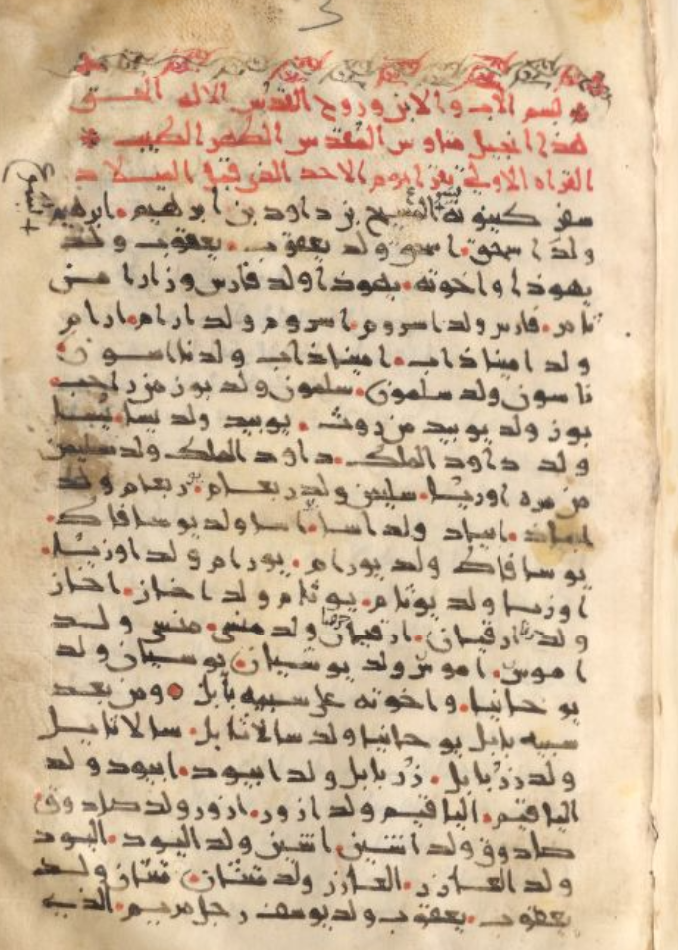 3
بسم الاب والابن وروح القدس الاله الحق
هذا انجيل متاوس المقدس الطهر الطيب
القراه الاولى يقرا يوم الاحد الذي قبل الميلاد
سفر كينونه المسيح بن داود بن ابرهيم. ابرهيم
ولد اسحق. اسحق ولد يعقوب. يعقوب ولد
يهوذا واخوته. يهوذا ولد فارس وزارا من
تامر. فارس ولد اسروم. اسروم ولد ارام. ارام
ولد اميناذاب. اميناذاب ولد نااسون
ناسون ولد سلمون. سلمون ولد بوز من راحب.
بوز ولد يوبيد من روث. يوبيد ولد يسا. يسا
ولد داود الملك. داود الملك ولد سليمن
من مره اوريا. سليمن ولد ربعام. ربعام ولد
ابياد. ابياد ولد اسا. اسا ولد يوسافاط.
يوسافاط ولد يورام. يورام ولد اوزيا.
اوزيا ولد يوتام. يوتام ولد احاز. احاز
ولد ازقيان. ازقيان ولد منسى. منسى ولد
اموس. اموس ولد يوسيان. يوسيان ولد
يوحانيا. واخوته على سبيه بابل ومن بعد
سبيه بابل يوحانيا ولد سالاتايل. سالاتايل
ولد زربابل. زربابل ولد ابيود. ابيود ولد
الياقيم. الياقيم ولد ازور. ازور ولد صادوق.
صادوق ولد اشين. اشين ولد اليود. اليود
ولد العازر. العازر ولد متثان. متثان ولد
يعقوب. يعقوب ولد يوسف رجل مريم. الذي